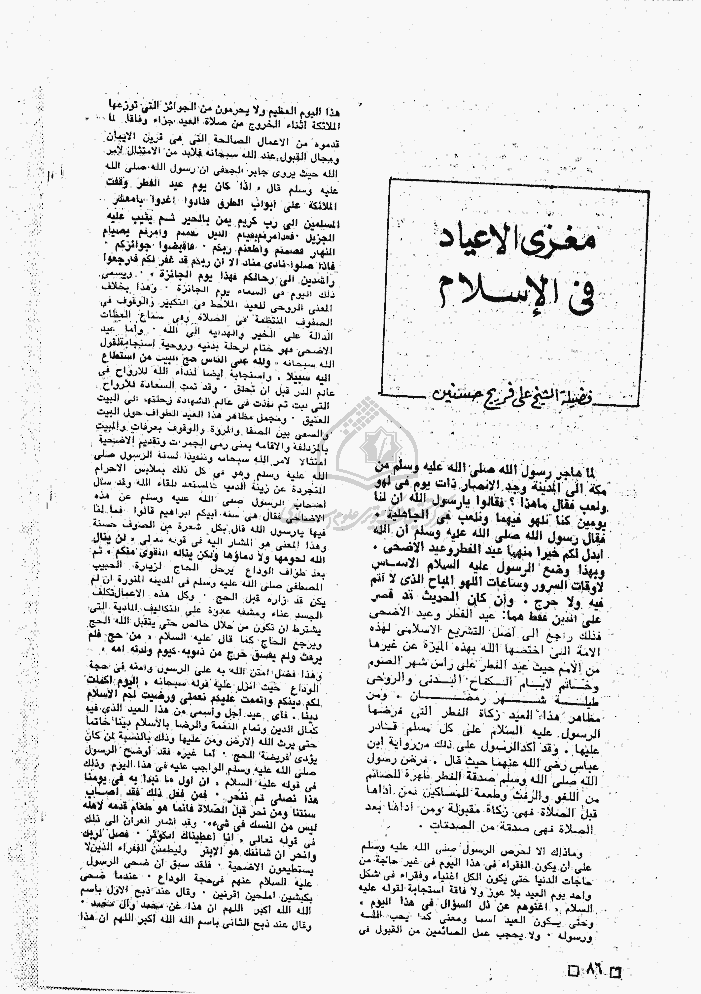 مغزى الاعياد
في الإسلام
فضيلة الشيخ على فريج حسنين
لما هاجر رسول الله صلى الله عليه وسلم من
مكة الى المدينة وجد الانصار ذات يوم في لهو
ولعب فقال ماهذا ؟ فقالوا يارسول الله ان لنا
يومين كنا نلهو فيهما ونلعب فى الجاهلية ٠
فقال رسول الله صلى الله عليه وسلم ان الله
ابدل لكم خيرا منهما عيد الفطر وعيد الاضحى ٠
وبهذا وضع الرسول عليه السلام الاساس
لاوقات السرور وساعات اللهو المباح الذى لا اثم
فيه ولا حرج ٠ وان كان الحديث قد قصر
على اثنين فقط هما: عيد الفطر وعيد الاضحى
فذلك راجع الى اصل التشريع الاسلامى لهذه
الامة التى اختصها الله بهذه الميزة عن غيرها
من الامم حيث عيد الفطر على رأس شهر الصوم
وختام لايام الكفاح البدنى والروحى
طيلة شهر رمضان ٠ ومن
مظاهر هذا العيد زكاة الفطر التى فرضها
الرسول عليه السلام على كل مسلم قادر
عليها ٠ وقد أكد الرسول على ذلك من رواية ابن
عباس رضى الله عنهما حيث قال ٠ فرض رسول
الله صلى الله وسلم صدقة الفطر طهرة للصائم
من اللغو والرفث وطعمة للمساكين فمن أداها
قبل الصلاة فهى زكاة مقبولة ومن أداها بعد
الصلاة فهى صدقة من الصدقات ٠
وماذلك الا لحرص الرسول صلى الله عليه وسلم
على ان يكون الفقراء فى هذا اليوم فى غير حاجة من
حاجات الدنيا حتى يكون الكل اغنياء وفقراء فى شكل
واحد يوم العيد بلا عوز ولا فاقة استجابة لقوله عليه
السلام ٠ اغنوهم عن ذل السؤال فى هذا اليوم ٠
وحتى يكون العيد اسما ومعنى كما يحب الله
ورسوله ٠ ولا يحجب عمل الصائمين من القبول فى
هذا اليوم العظيم ولا يحرمون من الجوائز التى توزعها
الملائكة اثناء الخروج من صلاة العيد جزاء وفاقا لما
قدموه من الاعمال الصالحة التى هى قرين الايمان
ومجال القبول عند الله سبحانه فلابد من الامتثال لامر
الله حيث يروى جابر الجعفى ان رسول الله صلى الله
عليه وسلم قال ٠ اذا كان يوم عيد الفطر وقفت
الملائكة على أبواب الطرق فنادوا اغدوا يامعشر
المسلمين الى رب كريم يمن بالخير ثم يثيب عليه
الجزيل ٠ فقد امرتم بقيام الليل فقمتم وامرتم بصيام
النهار فصمتم واطعتم ربكم ٠ فاقبضوا جوائزكم ٠
فاذا صلوا نادى مناد الا ان ربكم قد غفر لكم فارجعوا
راشدين الى رحالكم فهذا يوم الجائزة ٠ ويسمى
ذلك اليوم فى السماء يوم الجائزة ٠ وهذا بخلاف
المعنى الروحى للعيد الملاحظ فى التكبير والوقوف فى
الصفوف المنتظمة فى الصلاة وفى سماع العظات
الدالة على الخير والهداية الى الله ٠ وأما عيد
الاضحى فهو ختام لرحلة بدنية وروحية استجابة لقول
الله سبحانه ٠ ولله على الناس حج البيت من استطاع
اليه سبيلا ٠ واستجابة أيضا لنداء الله للارواح فى
عالم الذر قبل ان تخلق ٠ وقد تمت السعادة للارواح
التى لبت ثم نفذت فى عالم الشهادة رحلتها الى البيت
العتيق ٠ ومجمل مظاهر هذا العيد الطواف حول البيت
والسعى بين الصفا والمروة والوقوف بعرفات والمبيت
بالمزدلفة والاقامة بمنى رمى الجمرات وتقديم الاضحية
امتثالا لامر الله سبحانه وتنفيذا لسنة الرسول صلى
الله عليه وسلم وهو فى كل ذلك بملابس الاحرام
المتجردة عن زينة الدنيا كالمستعد للقاء الله وقد سأل
أصحاب الرسول صلى الله عليه وسلم عن هذه
الاضاحى فقال هى سنة أبيكم ابراهيم قالوا فما لنا
فيها يارسول الله قال بكل شعرة من الصوف حسنة
وهذا المعنى هو المشار اليه فى قوله تعالى ٠ لن ينال
الله لحومها ولا دماؤها ولكن يناله التقوى منكم ٠ ثم
بعد طواف الوداع يرحل الحاج لزيارة الحبيب
المصطفى صلى الله عليه وسلم فى المدينة المنورة ان لم
يكن قد زاره قبل الحج ٠ وكل هذه الاعمال تكلف
الجسد عناء ومشقة علاوة على التكاليف المادية التى
يشترط ان تكون من حلال خالص حتى يتقبل الله الحج
ويرجع الحاج كما قال عليه السلام ٠ من حج فلم
يرفث ولم يفسق خرج من ذنوبه كيوم ولدته امه ٠
وهذا فضل امتن الله به على الرسول وامته فى حجة
الوداع حيث انزل عليه قوله سبحانه ٠ اليوم اكملت
لكم دينكم واتممت عليكم نعمتى ورضيت لكم الاسلام
دينا ٠ فأى عيد أجل وأسمى من هذا العيد الذى فيه
كمال الدين وتمام النعمة والرضا بالاسلام دينا خاتما
حتى يرث الله الارض ومن عليها وذلك بالنسبة لمن كان
يؤدى فريضة الحج ٠ أما غيره فقد أوضح الرسول
صلى الله عليه وسلم الواجب عليه فى هذا اليوم وذلك
فى قوله عليه السلام ٠ ان أول ما نبدأ به فى يومنا
هذا نصلى ثم ننحر ٠ فمن فعل ذلك فقد اصاب
سنتنا ومن نحر قبل الصلاة فانما هو طعام قدمه لاهله
ليس من النسك فى شىء ٠ وقد اشار القرآن الى ذلك
فى قوله تعالى ٠ انا اعطيناك الكوثر ٠ فصل لربك
وانحر ان شانئك هو الابتر ٠ وليطمئن الفقراء الذين لا
يستطيعون الاضحية ٠ فلقد سبق ان ضحى الرسول
عليه السلام عنهم فى حجة الوداع ٠ عندما ضحى
بكبشين املحين اقرنين ٠ وقال عند ذبح الاول باسم
الله الله أكبر اللهم ان هذا عن محمد وآل محمد ٠
وقال عند ذبح الثانى باسم الله الله أكبر اللهم ان هذا
٨٦